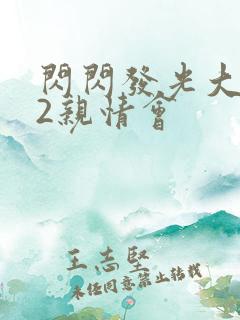 閃閃發光大
2親情會
王志堅
未经同意禁止转载